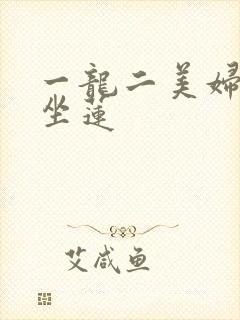 一龍二美婦
坐蓮
艾咸鱼